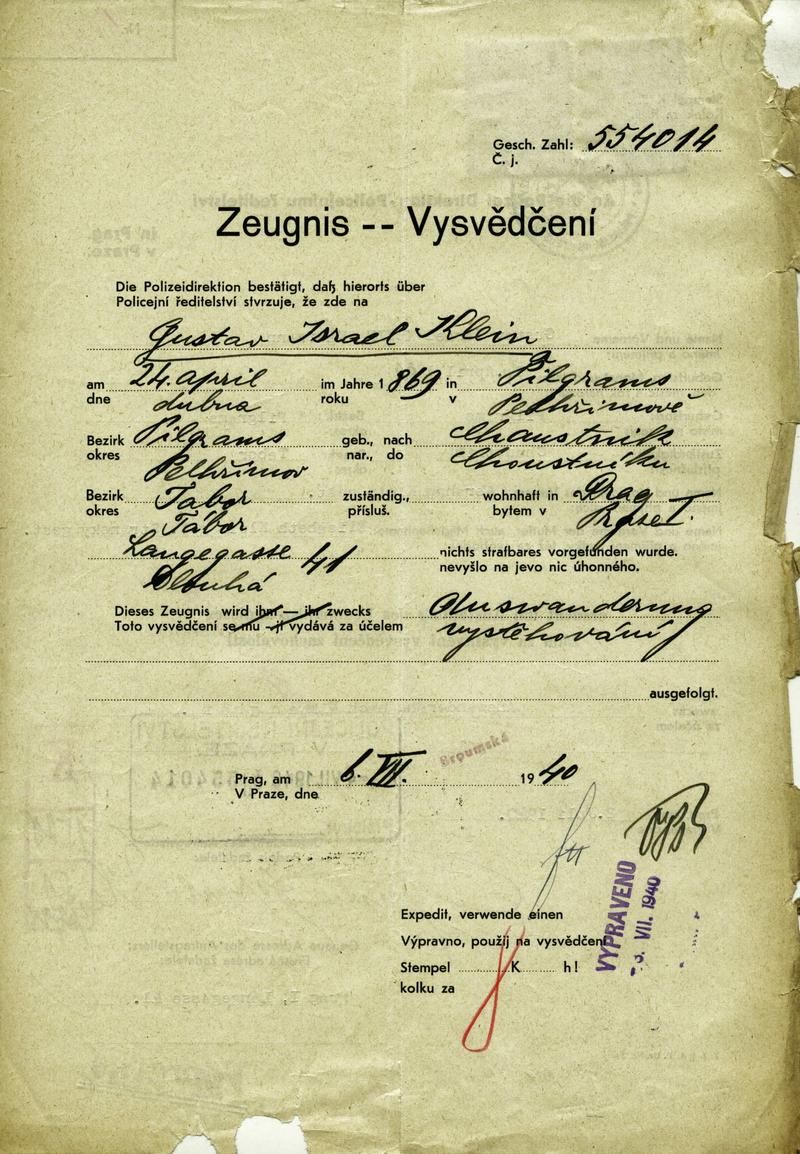 Gesch. Zahl: 554014
Č. j.
Zeugnis -- Vysvědčení
Die Polizeidirektion bestätigt, daß hierorts über
Policejní ředitelství stvrzuje, že zde na
Gustav Israel Klein
am 24. April im Jahre 1869 in Pilgrams
dne dubna roku v Pelhřimově
Bezirk Pilgrams geb., nach Chaustnik
okres Pelhřimov nar., do Choustníku
Bezirk Tabor zuständig., wohnhaft in Prag
okres Tábor přísluš. bytem v Praze I.
Langegasse 41 nichts strafbares vorgefunden wurde.
Dlouhá nevyšlo na jevo nic úhonného.
Dieses Zeugnis wird ihm — ihr zwecks Auswanderung
Toto vysvědčení se mu - jí vydává za účelem vystěhování
ausgefolgt.
Prag, am 6. VII. 1940
V Praze, dne
Broumská
Expedit, verwende einen
Výpravno, použij na vysvědčení
Stempel K h!
kolku za
VYPRAVENO
VII. 1940